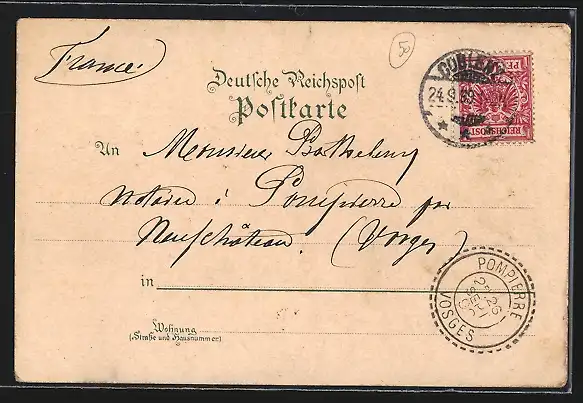 France.
5
Deutsche Reichspost
Postkarte
COBLENZ
24.9.
REICHSPOST
PF
An Monsieur
Notaire à Pompierre par
Neufchâteau. (Vosges)
in
POMPIERRE
26
SEPT
VOSGES
Wohnung
(Straße und Hausnummer)